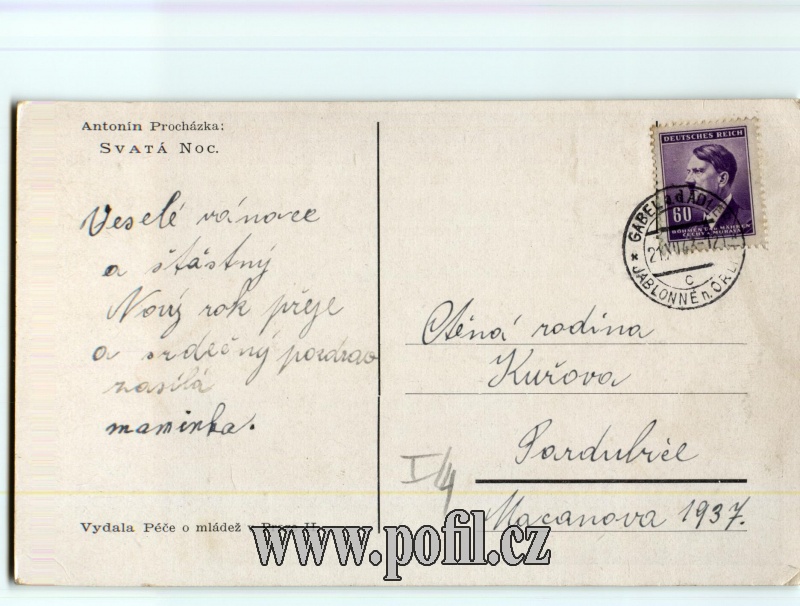 Antonín Procházka:
Svatá Noc.
Veselé vánoce
a šťastný
Nový rok přeje
a srdečný pozdrav
zasílá
maminka.
Vydala Péče o mládež v Praze II.
DEUTSCHES REICH
60
BÖHMEN u. MÄHREN
ČECHY a MORAVA
GABEL a.d. ADLER
JABLONNÉ n. ORL.
c
Ctěná rodina
Kuřova
Pardubice
I/4
Macanova 1937.
www.pofil.cz